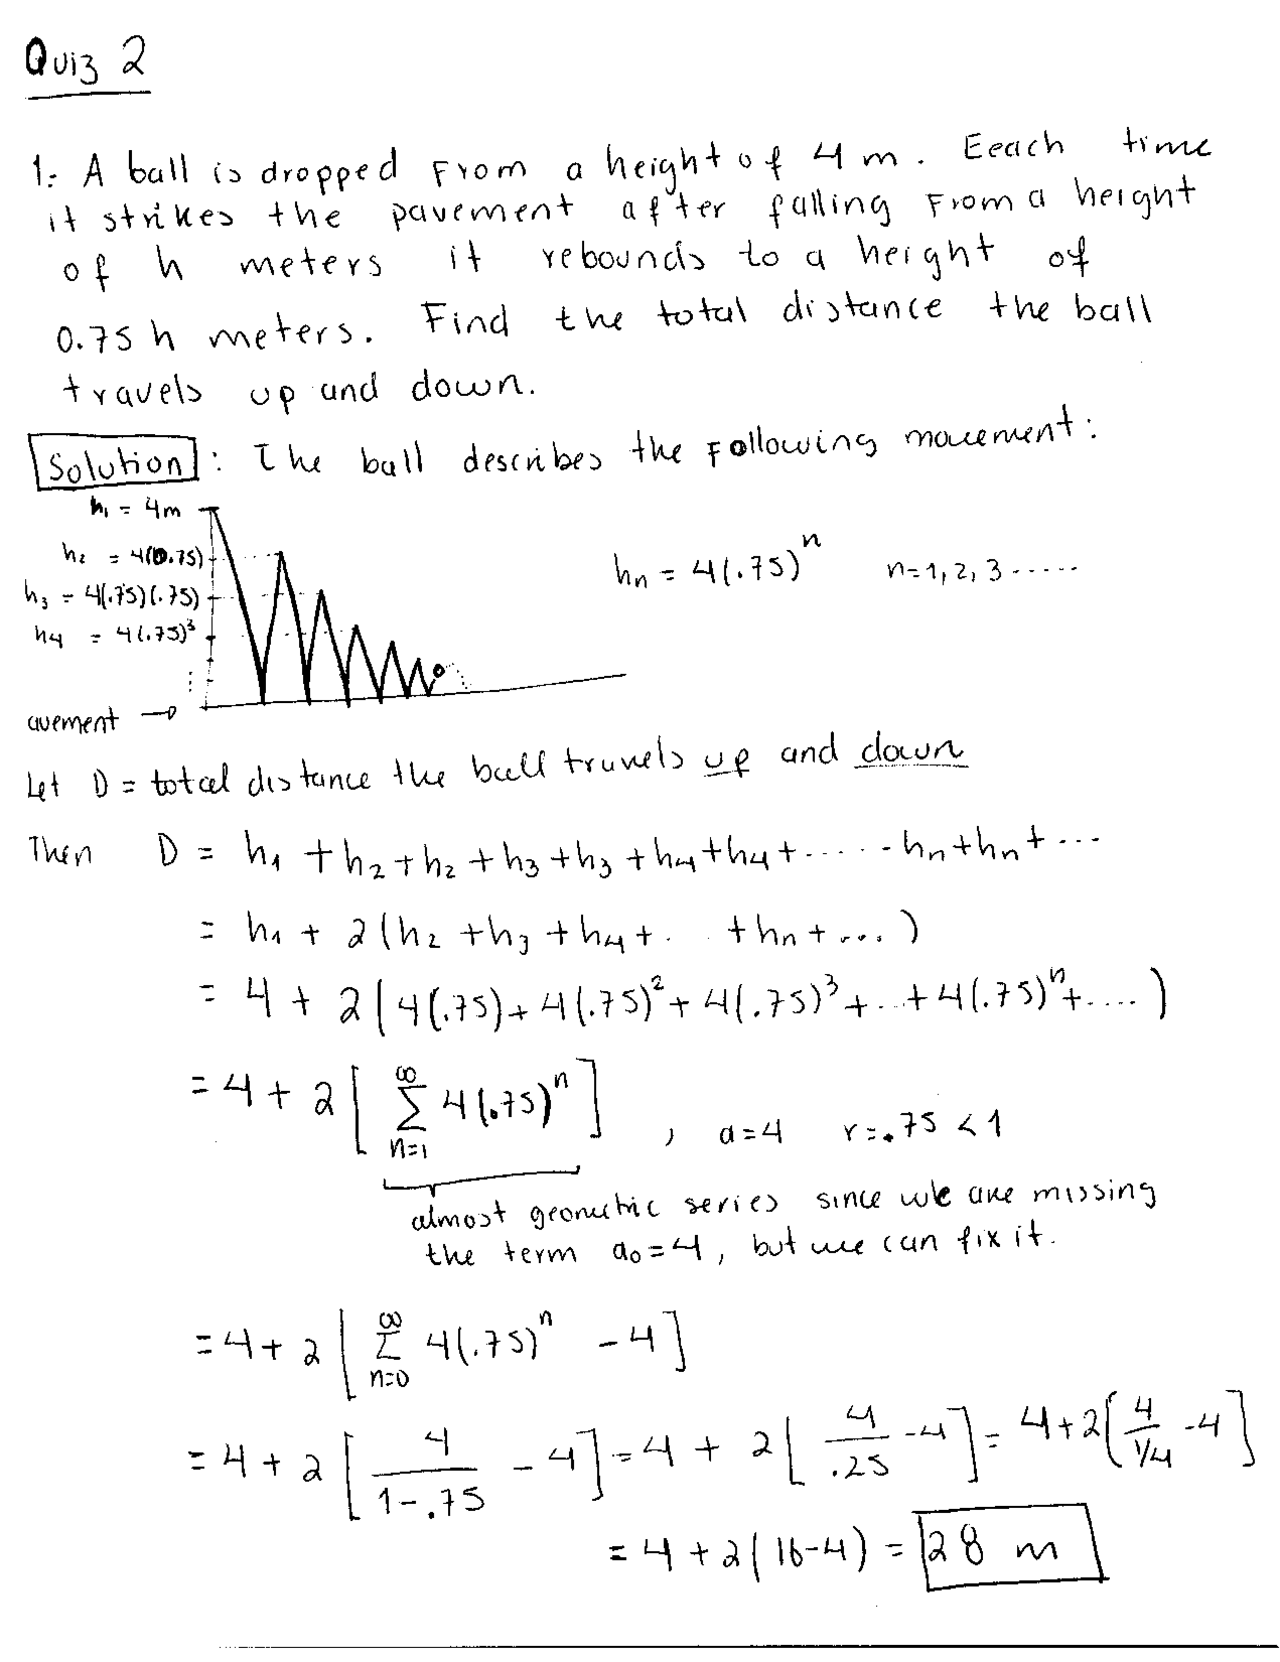 Quiz 2
1. A ball is dropped From a height of 4 m. Eeach time
it strikes the pavement after falling From a height
of h meters it rebounds to a height of
0.75 h meters. Find the total distance the ball
travels up and down.
Solution: The ball describes the Following movement:
h₁ = 4m
h₂ = 4(0.75)
h₃ = 4(.75)(.75)
h₄ = 4(.75)³
hₙ = 4(.75)ⁿ n=1, 2, 3 ......
avement →
Let D = total distance the ball travels up and down
Then D = h₁ + h₂ + h₂ + h₃ + h₃ + h₄ + h₄ + ...... hₙ + hₙ + ...
= h₁ + 2(h₂ + h₃ + h₄ + .. + hₙ + ...)
= 4 + 2(4(.75) + 4(.75)² + 4(.75)³ + .. + 4(.75)ⁿ + ....)
= 4 + 2[∑_{n=1}^{∞} 4(.75)ⁿ] , a=4 r=.75 < 1
almost geometric series since we are missing
the term a₀=4, but we can fix it.
= 4 + 2[∑_{n=0}^{∞} 4(.75)ⁿ - 4]
= 4 + 2[4/(1-.75) - 4] = 4 + 2[4/.25 - 4] = 4 + 2[4/(1/4) - 4]
= 4 + 2(16-4) = 28 m